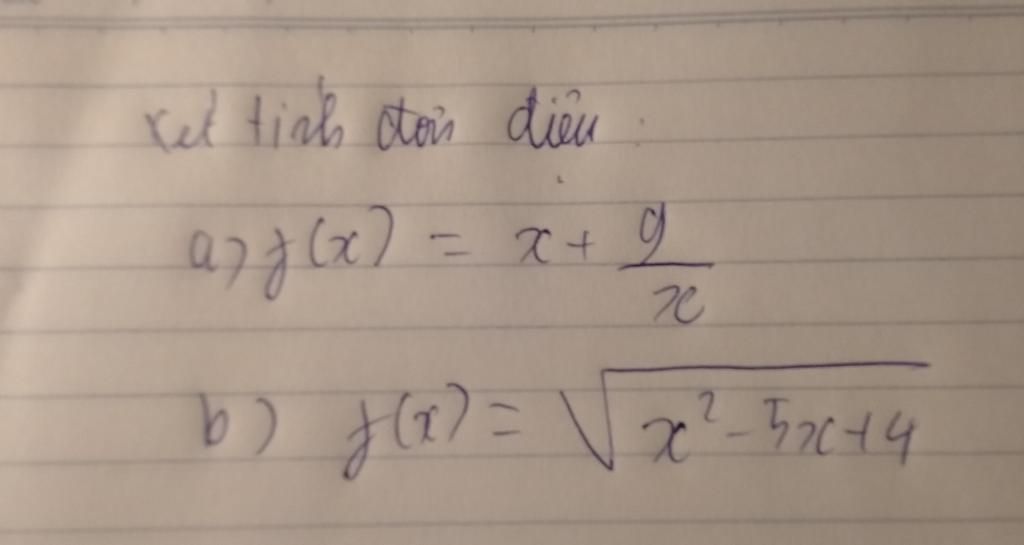 Xét tính đơn điệu :
a) f(x) = x + 9/x
b) f(x) = √(x² - 5x + 4)